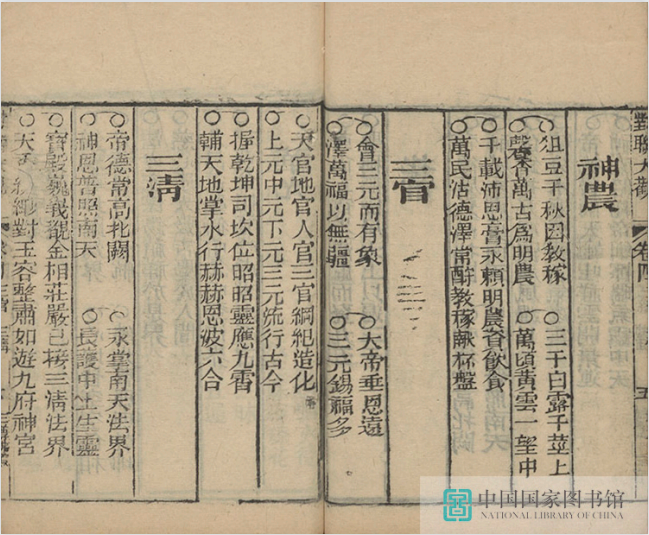 對聯大觀 卷四
神農
俎豆千秋因教稼 三千白露千莖上
馨香萬古為明農 萬頃黃雲一望中
千載沛恩膏永賴明農資飲食
萬民沾德澤常酧教稼献杯盤
三官
會三元而有象 大帝垂恩遠
澤萬福以無疆 三元錫福多
天官地官人官三官綱紀造化
上元中元下元三元流行古今
握乾坤司坎位昭昭靈應九霄
輔天地掌水行赫赫恩波六合
三清
帝德常高北闕 永掌南天法界
神恩普照南天 長護中土生靈
寶殿巍峩覩金相莊嚴已接三清法界
對玉容整肅如遊九府神宮
中国国家图书馆
NATIONAL LIBRARY OF CHINA